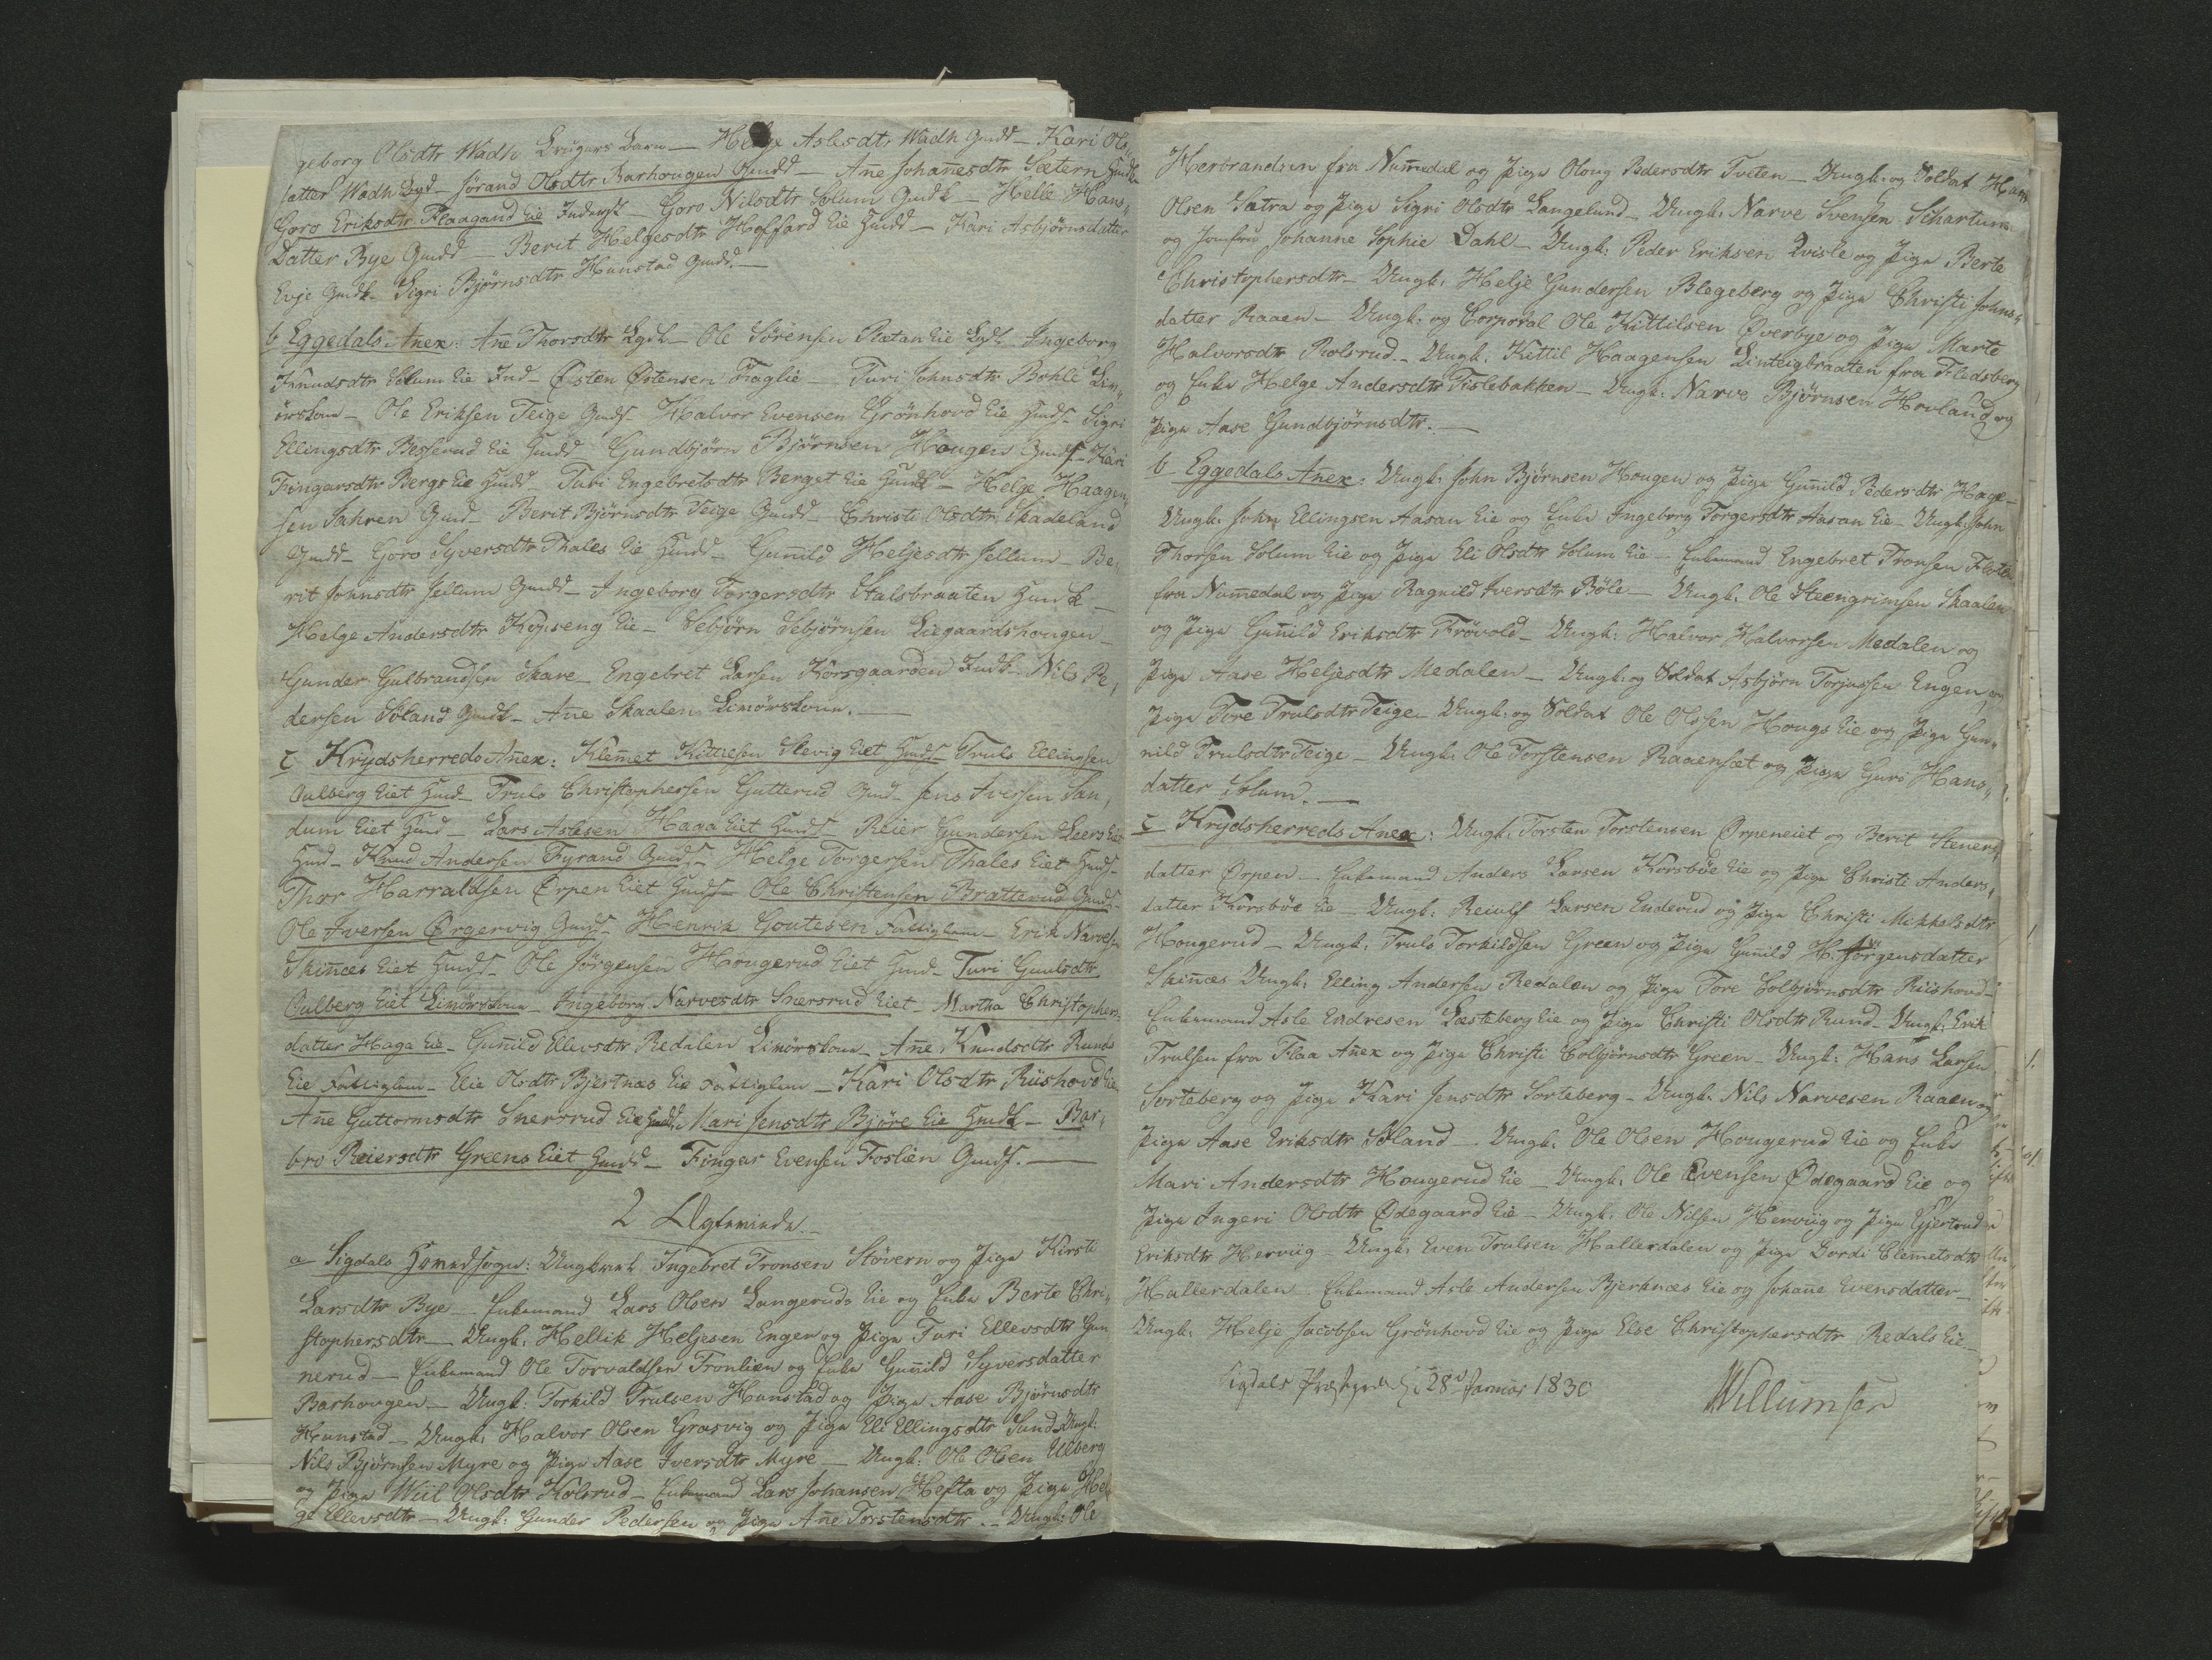 geborg Olsdtr Wadh Brugers Barn — Helge Aslesdtr Wadh Gmdd — Kari Ols„
datter Wadh Lgd — Jörand Olsdtr Barhougen Gmdd — Añe Johañesdtr Sætern
Goro Eriksdtr Flaagand Eie Inderst — Goro Nilsdtr Solum Gmdk — Helle Hans„
Datter Bye Gmdd — Berit Helgesdtr Hoffard Eie Hmdd — Kari Asbjörnsdatter
Evje Gmdk. Sigri Björnsdtr Hunstad Gmdd. —
b Eggedals Añex: Añe Thorsdtr Lgdk — Ole Sörensen Plætan Eie Lgdk — Ingeborg
Knudsdtr Solum Eie Ind — Östen Östensen Fraglie — Turi Johnsdtr Bohle Lem„
örskone — Ole Eriksen Teige Gmds. Halvor Evensen Grönhovd Eie Hmds — Sigri
Ellingsdtr Besserud Eie Hmdd — Gundbjörn Björnsen Hougen Gmds — Kari
Fingarsdtr Bergs Eie Hmdd — Turi Engebretsdtr Berget Eie Hmdk — Helge Haagen„
sen Jahren Gmd — Berit Björnsdtr Teige Gmdd — Christi Olsdtr Skadeland
Gmdd — Goro Syversdtr Thales Eie Hmdd — Guñild Heljesdtr Jellum — Be„
rit Johnsdtr Jellum Gmdd — Ingeborg Torgersdtr Stalsbraaten Hmdk —
Helge Andersdtr Eie — Sebjörn Sebjörnsen Liegaardshougen —
Gunder Gulbrandsen Skare — Engebret Larsen Korsgaarden Indk — Nils Pe„
dersen Söland Gmdk — Añe Skaalen Lemörskone. —
c Krydsherreds Añex: Klemet Kittilsen Skevig Eiet Hmds — Truls Ellingsen
Oulberg Eiet Hmd — Truls Christophersen Gutterud Gmd — Jens Iversen San„
dum Eiet Hmd — Lars Aslesen Haga Eiet Hmds — Reier Gundersen Leers Eiet
Hmd — Knud Andersen Fyrand Gmds — Helge Torgersen Thales Eiet Hmds —
Thor Harraldsen Örpen Eiet Hmds — Ole Christensen Bratterud Gmds —
Ole Iversen Örgervig Gmds — Henrik Goutesen Fattiglem — Erik Narvesen
Skinæs Eiet Hmds — Ole Jörgensen Hougerud Eiet Hmd — Turi Gunlsdtr
Oulberg Eiet Lemörskone — Ingeborg Narvesdtr Snersrud Eiet — Martha Christophers„
datter Haga Eie — Guñild Ellevsdtr Redalen Lemörskone — Añe Knudsdtr Runds
Eie Fattiglem — Elie Olsdtr Bjertnæs Eie Fattiglem — Kari Olsdtr Riishovd Eie
Añe Guttormsdtr Snersrud Eie Hmdd. Mari Jensdtr Björe Eie Hmdk — Bar„
bro Reiersdtr Greens Eiet Hmdd — Fingar Evensen Foslien Gmds. —
2 Ægteviede. —
a Sigdals Hovedsogn: Ungkarl Ingebret Tronsen Stövern og Pige Kirsti
Larsdtr Bye — Enkemand Lars Olsen Langeruds Eie og Enke Berte Chri„
stophersdtr — Ungk: Hellik Heljesen Engen og Pige Turi Ellevsdtr Gun
nerud — Enkemand Ole Torvaldsen Tronlien og Enke Guñild Syversdatter
Barhougen — Ungk: Torkild Trulsen Hunstad og Pige Aase Björnsdtr
Hunstad — Ungk: Halvor Olsen Græsvig og Pige Eli Ellingsdtr Sund. Ungk:
Nils Björnsen Myre og Pige Aase Iversdtr Myre — Ungk: Ole Olsen Ulberg
og Pige Wiil Olsdtr Kolsrud — Enkemand Lars Johansen Hefta og Pige Hel
ge Ellevsdtr — Ungk: Gunder Pedersen og Pige Añe Torstensdtr. — Ungk: Ole
Herbrandsen fra Numedal og Pige Oloug Pedersdtr Tveten — Ungk: og Soldat Hans
Olsen Sætra og Pige Sigri Olsdtr Langelund — Ungk: Narve Svensen Schartum
og Jomfru Johanne Sophie Dahl — Ungk: Peder Eriksen Qvisle og Pige Berte
Christophersdtr — Ungk: Helje Gundersen Blegeberg og Pige Christi Johns„
datter Raaen — Ungk: og Corporal Ole Kittilsen Överbye og Pige Marte
Halvorsdtr Rolsrud. — Ungk. Kittil Haagensen Linteigbraaten fra Fledsberg
og Enke Helge Andersdtr Tislebakken — Ungk: Narve Björnsen Hovland og
Pige Aase Gundbjörnsdtr. —
b Eggedals Añex: Ungk: John Björnsen Hougen og Pige Guñild Pedersdtr Hage —
Ungk: John Ellingsen Aasan Eie og Enke Ingeborg Torgersdtr Aasan Eie — Ungk: John
Thorsen Solum Eie og Pige Eli Olsdtr Solum Eie — Enkemand Engebret Tronsen
fra Numedal og Pige Ragnild Iversdtr Böle — Ungk: Ole Steengrimsen Skaalen
og Pige Guñild Eriksdtr Frövold — Ungk: Halvor Halvorsen Medalen og
Pige Aase Heljesdtr Medalen — Ungk: og Soldat Asbjörn Torjussen Engen og
Pige Tore Trulsdtr Teige — Ungk: og Soldat Ole Olssen Hougs Eie og Pige Gun„
nild Trulsdtr Teige — Ungk: Ole Torstensen Raaensæt og Pige Guri Hans„
datter Solum. —
c Krydsherreds Anex: Ungk: Torsten Torstensen Örpeneiet og Berit Steners„
datter Örpen — Enkemand Anders Larsen Korsböe Eie og Pige Christi Anders„
datter Korsböe Eie — Ungk: Reiulf Larsen Enderud og Pige Christi Mikkelsdtr
Hougerud — Ungk: Truls Torkildsen Green og Pige Guñild H. Jörgensdatter
Skinæs Ungk: Elling Andersen Redalen og Pige Tore Colbjörnsdtr Riishovd —
Enkemand Asle Endresen Læsteberg Eie og Pige Christi Olsdtr Rund — Ungk: Erik
Trulsen fra Flaa Añex og Pige Christi Colbjörnsdtr Green — Ungk: Hans Larsen
Sorteberg og Pige Kari Jensdtr Sorteberg — Ungk: Nils Narvesen Raaen og
Pige Aase Eriksdtr Söland — Ungk: Ole Olsen Hougerud Eie og Enke
Mari Andersdtr Hougerud Eie — Ungk: Ole Evensen Ödegaard Eie og
Pige Ingeri Olsdtr Ödegaard Eie — Ungk: Ole Nilsen Herviig og Pige Gjertrud
Eriksdtr Herviig — Ungk: Even Trulsen Hallerdalen og Pige Dordi Clemetsdtr
Hallerdalen. Enkemand Asle Andersen Bjerknæs Eie og Johañe Evensdatter —
Ungk: Helje Jacobsen Grönhovd Eie og Pige Else Christophersdtr Redals Eie —
Sigdals Præstegaard 28de Januar 1830
Willumsen